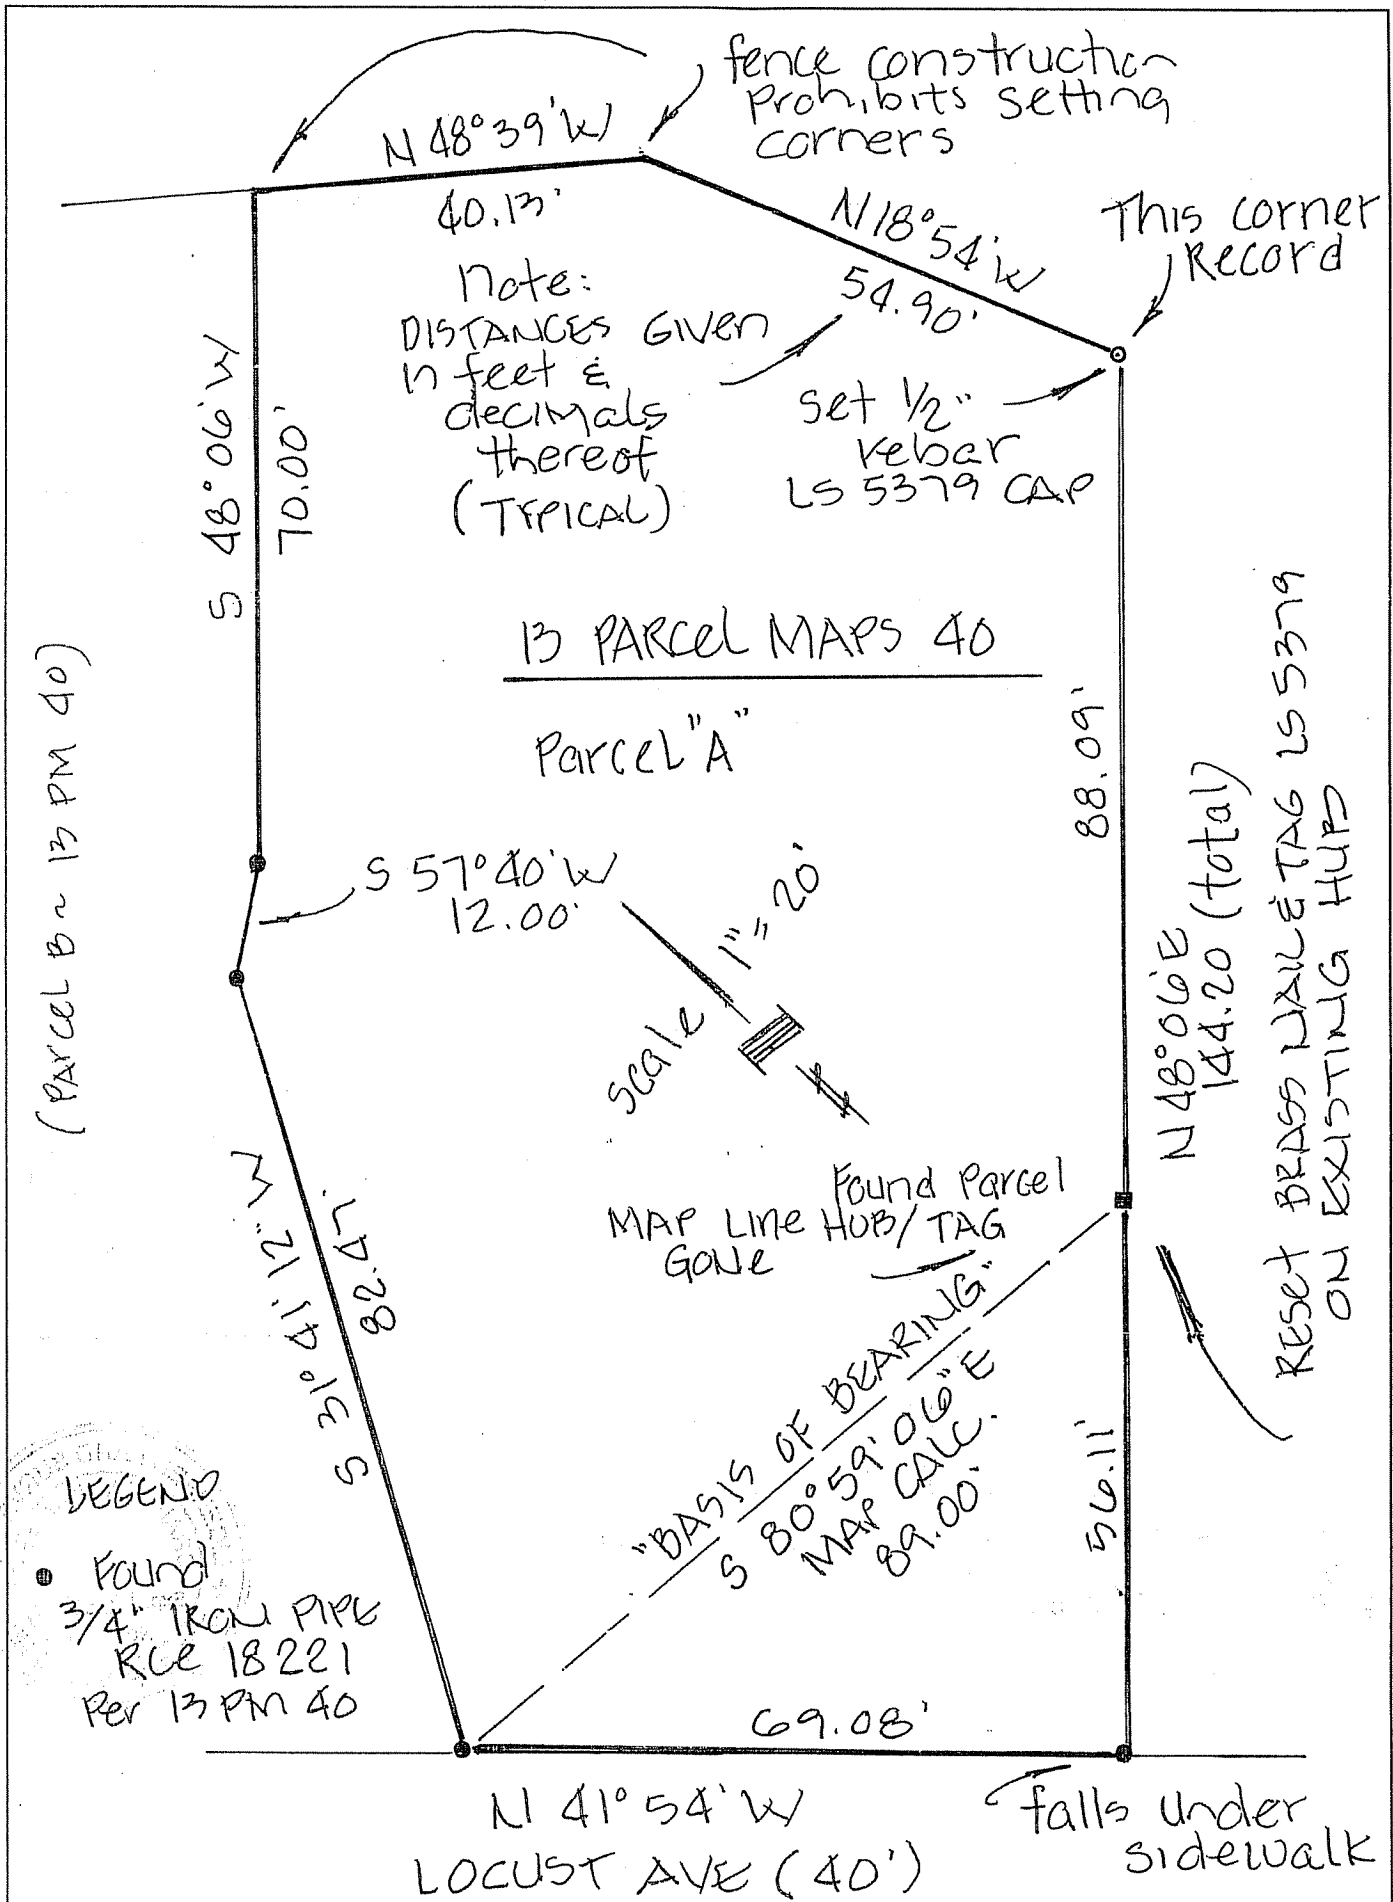 fence construction
Prohibits setting
corners
N 48°39' W
40.13'
N 18°54' W
54.90'
This corner
Record
Note:
DISTANCES GIVEN
in feet &
decimals
thereof
(TYPICAL)
Set 1/2"
rebar
LS 5379 CAP
S 48°06' W
70.00'
13 PARCEL MAPS 40
Parcel "A"
(Parcel B ~ 13 PM 40)
88.09'
N 48°06' E
144.20 (total)
RESET BRASS NAIL & TAG LS 5379
ON EXISTING HUBS
S 57°40' W
12.00'
Scale 1" = 20'
Found Parcel
MAP Line HUB/TAG
GONE
S 31° 41' 12" W
82.47'
"BASIS OF BEARING"
S 80°59'06" E
MAP CALC.
89.00'
56.11'
LEGEND
Found
3/4" IRON PIPE
RCE 18221
Per 13 PM 40
69.08'
N 41°54' W
LOCUST AVE (40')
falls under
sidewalk